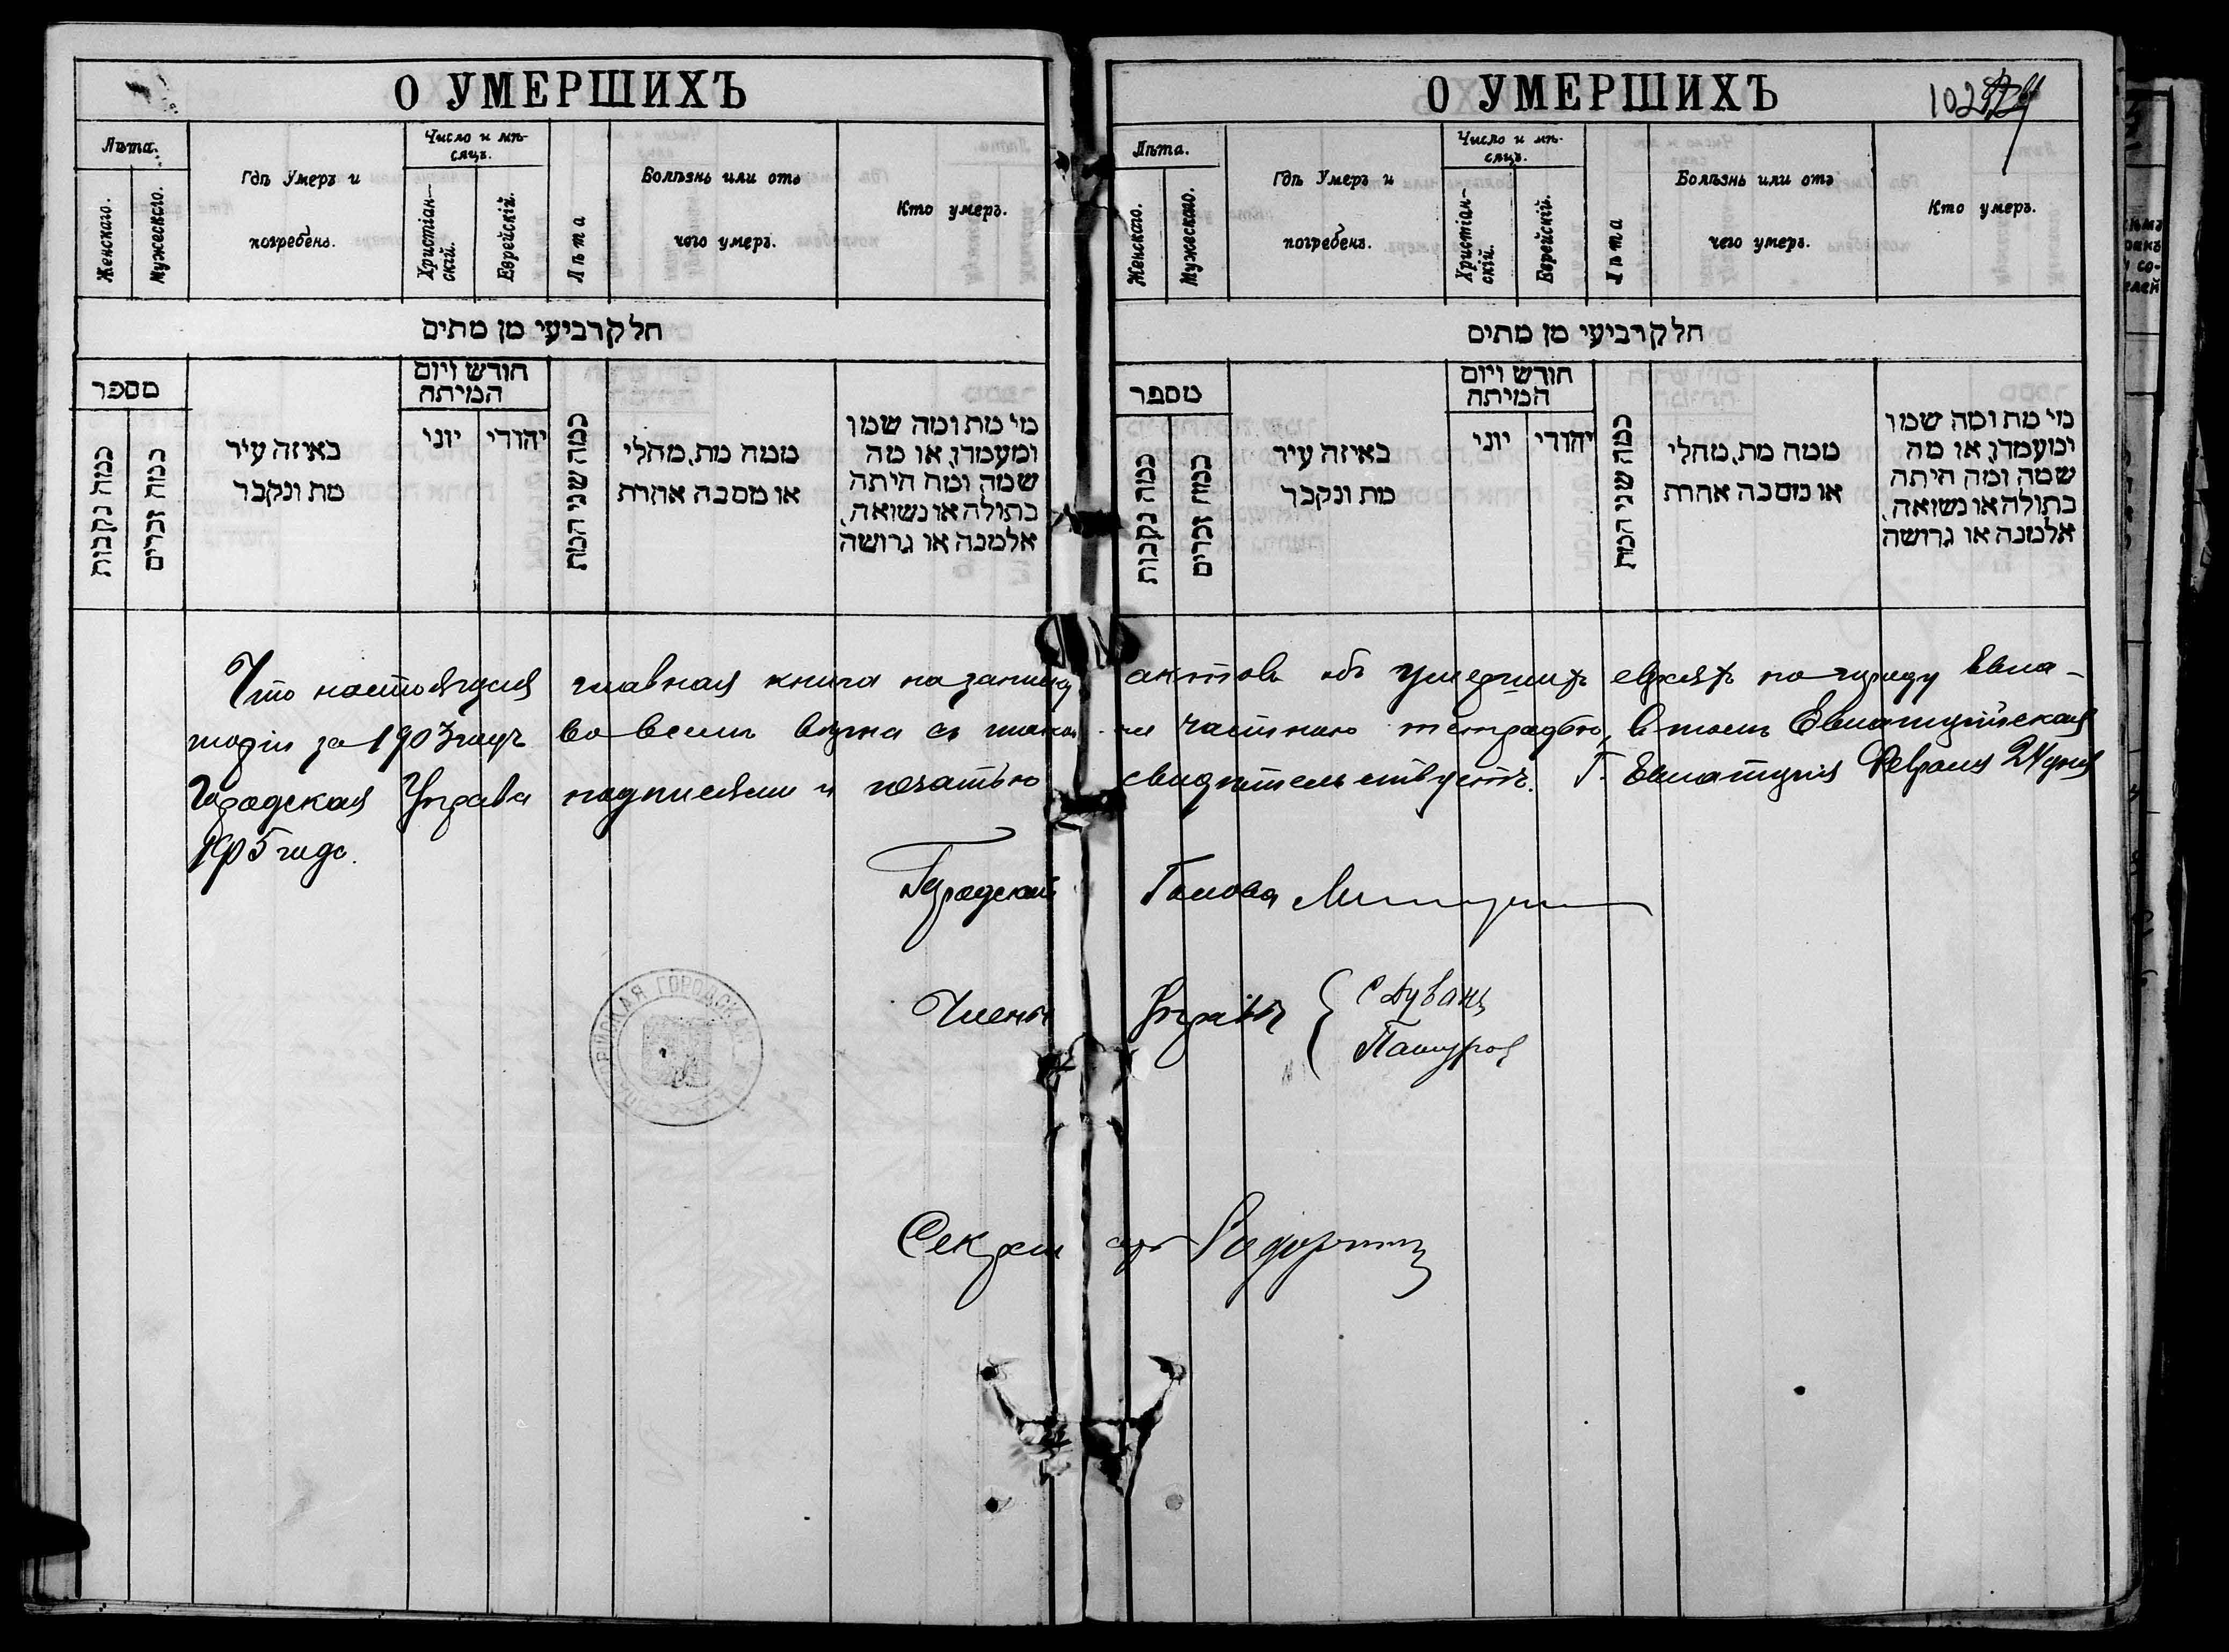 О УМЕРШИХЪ
Лѣта.
Женскаго.
Мужескаго.
Гдѣ Умеръ и
погребенъ.
Число и мѣ-
сяцъ.
Христіан-
скій.
Еврейскій.
Лѣта
Болѣзнь или отъ
чего умеръ.
Кто умеръ.
חלק רביעי מן מתים
מספר
כמה נקבות
כמה זכרים
באיזה עיר
מת ונקבר
חודש ויום
המיתה
יוני
יהודי
כמה שני המת
ממה מת, מחלי
או מסבה אחרת
מי מת ומה שמו
ומעמדו, או מה
שמה ומה היתה
בתולה או נשואה,
אלמנה או גרושה
О УМЕРШИХЪ
102
Лѣта.
Женскаго.
Мужескаго.
Гдѣ Умеръ и
погребенъ.
Число и мѣ-
сяцъ.
Христіан-
скій.
Еврейскій.
Лѣта
Болѣзнь или отъ
чего умеръ.
Кто умеръ.
חלק רביעי מן מתים
מספר
כמה נקבות
כמה זכרים
באיזה עיר
מת ונקבר
חודש ויום
המיתה
יוני
יהודי
כמה שני המת
ממה מת, מחלי
או מסבה אחרת
מי מת ומה שמו
ומעמדו, או מה
שמה ומה היתה
בתולה או נשואה,
אלמנה או גרושה
Что настоящая главная книга на запись актовъ объ умершихъ евреяхъ по городу Евпа-
торіи за 1903 годъ во всемъ вѣрна съ таковою частною тетрадью, въ томъ Евпаторійская
Городская Управа подписями и печатью свидѣтельствуетъ. Г. Евпаторія Февраля 24 дня
1905 года.
Городской Голова
Члены Управы { С Дуванъ
Секретарь